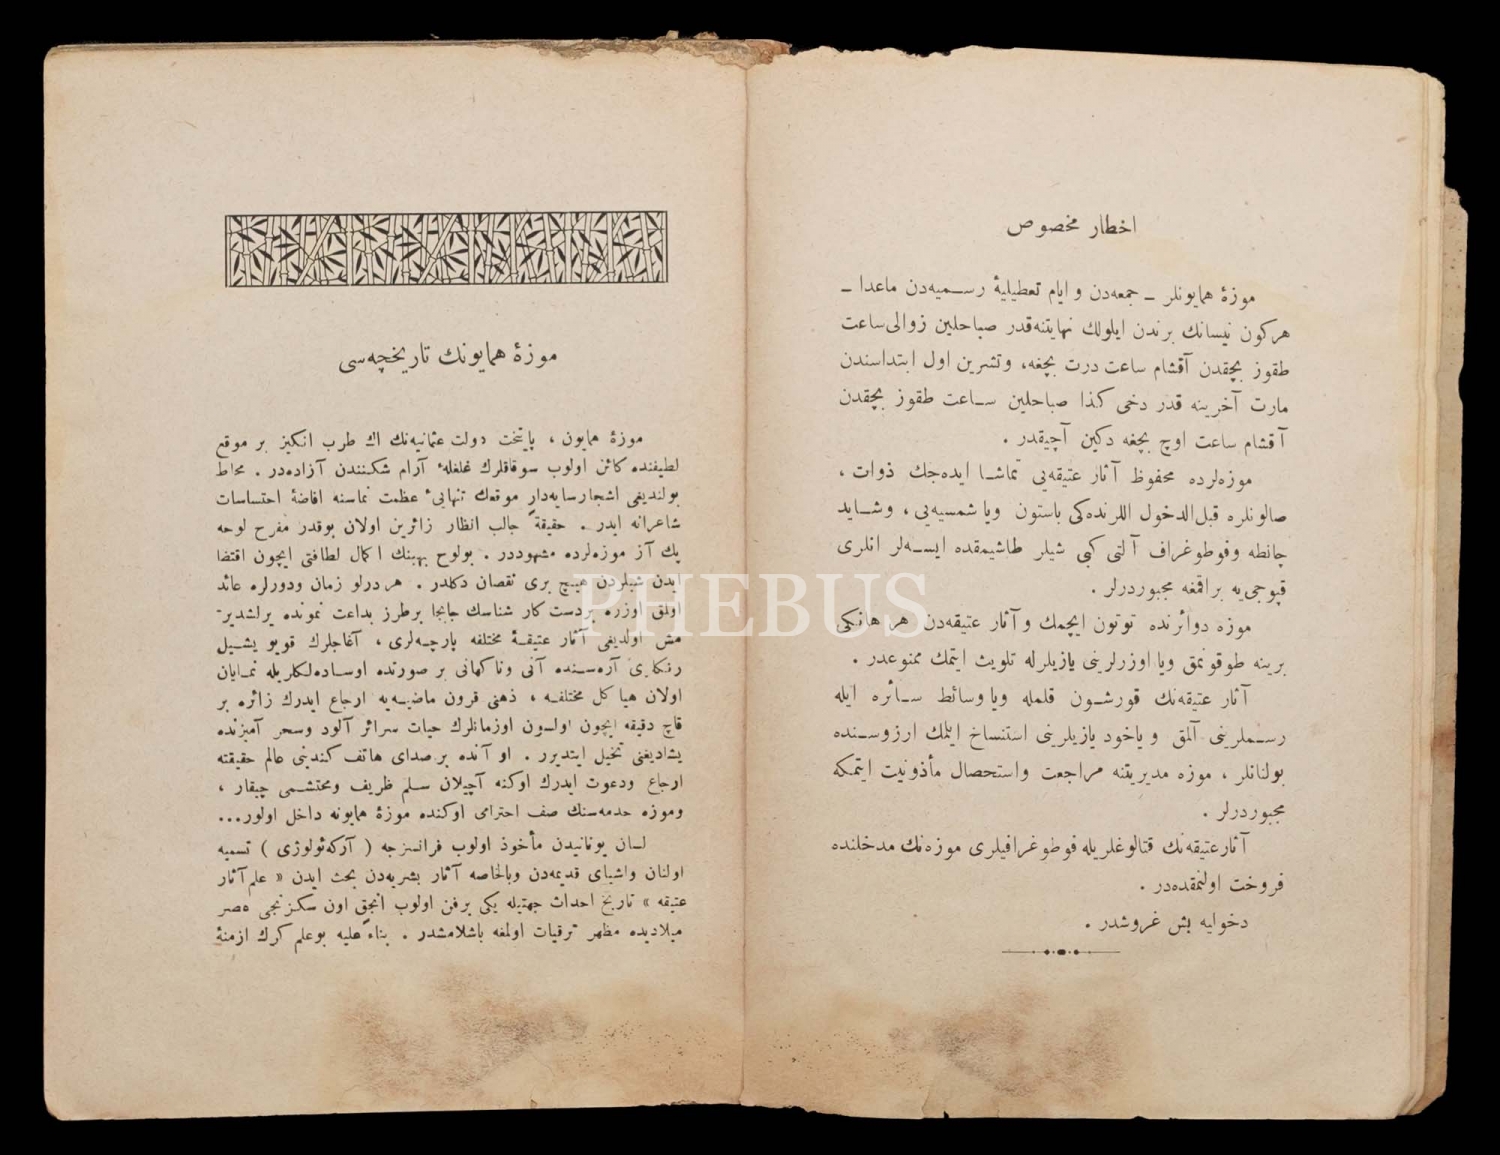 اخطار مخصوص
موزهٔ همایونلر ـ جمعه‌دن و ایام تعطیلیهٔ رسمیه‌دن ماعدا ـ
هرکون نیسانك برندن ایلولك نهایتنه قدر صباحلین زوالی ساعت
طقوز بچقدن آقشام ساعت درت بچغه، وتشرین اول ابتداسندن
مارت آخرینه قدر دخی کذا صباحلین ساعت طقوز بچقدن
آقشام ساعت اوچ بچغه دکین آچیقدر .
موزه‌لرده محفوظ آثار عتیقه‌یی تماشا ایده‌جك ذوات ،
صالونلره قبل‌الدخول اللرنده‌کی باستون ویا شمسیه‌یی ، وشاید
چانطه وفوطوغراف آلتی کبی شیلر طاشیمقده ایسه‌لر انلری
قپوجی‌یه براقمغه مجبوردرلر .
موزه دوائرنده توتون ایچمك و آثار عتیقه‌دن هر هانکی
برینه طوقونمق ویا اوزرلرینی یازیلرله تلویث ایتمك ممنوعدر .
آثار عتیقه‌نك قورشون قلمله ویا وسائط سائره ایله
رسملرینی آلمق و یاخود یازیلرینی استنساخ ایلمك ارزوسنده
بولنانلر ، موزه مدیریتنه مراجعت واستحصال مأذونیت ایتمکه
مجبوردرلر .
آثارعتیقه‌نك قتالوغلریله فوطوغرافیلری موزه‌نك مدخلنده
فروخت اولنمقده‌در .
دخولیه بش غروشدر .
موزهٔ همایونك تاریخچه‌سی
موزهٔ همایون ، پایتخت دولت عثمانیه‌نك اك طرب انکیز بر موقع
لطیفنده کائن اولوب سوقاقلرك غلغلهٔ آرام شکنندن آزاده‌در . محاط
بولندیغی اشجارسایه‌دار موقعك تنهایئ عظمت نماسنه افاضهٔ احتساسات
شاعرانه ایدر . حقیقةً جالب انظار زائرین اولان بوقدر مفرح لوحه
پك آز موزه‌لرده مشهوددر . بولوح بهینك اکمال لطافتی ایچون اقتضا
ایدن شیلردن هیچ بری نقصان دکلدر . هر درلو زمان ودورلره عائد
اولمق اوزره بردست کار شناسك جابجا برطرز بداعت نمونده یرلشدیر-
مش اولدیغی آثار عتیقهٔ مختلفه پارچه‌لری ، آغاجلرك قویو یشیل
رنکلری آره‌سنده آنی وناکهانی بر صورتده اوساده‌لکلریله نمایان
اولان هیاکل مختلفه ، ذهنی قرون ماضیه‌یه ارجاع ایدرك زائره بر
قاچ دقیقه ایچون اولسون اوزمانلرك حیات سرائر آلود وسحر آمیزنده
یشادیغنی تخیل ایتدیرر . او آنده بر صدای هاتف کندینی عالم حقیقته
ارجاع ودعوت ایدرك اوکنه آچیلان سلم ظریف ومحتشمی چیقار ،
وموزه خدمه‌سنك صف احترامی اوکنده موزهٔ همایونه داخل اولور...
لسان یونانیدن مأخوذ اولوب فرانسزجه ( آرکه‌ئولوژی ) تسمیه
اولنان واشیای قدیمه‌دن وبالخاصه آثار بشریه‌دن بحث ایدن « علم آثار
عتیقه » تاریخ احداث جهتیله یکی برفن اولوب انجق اون سکزنجی عصر
میلادیده مظهر ترقیات اولمغه باشلامشدر . بناءً علیه بوعلم کرك ازمنهٔ
PHEBUS